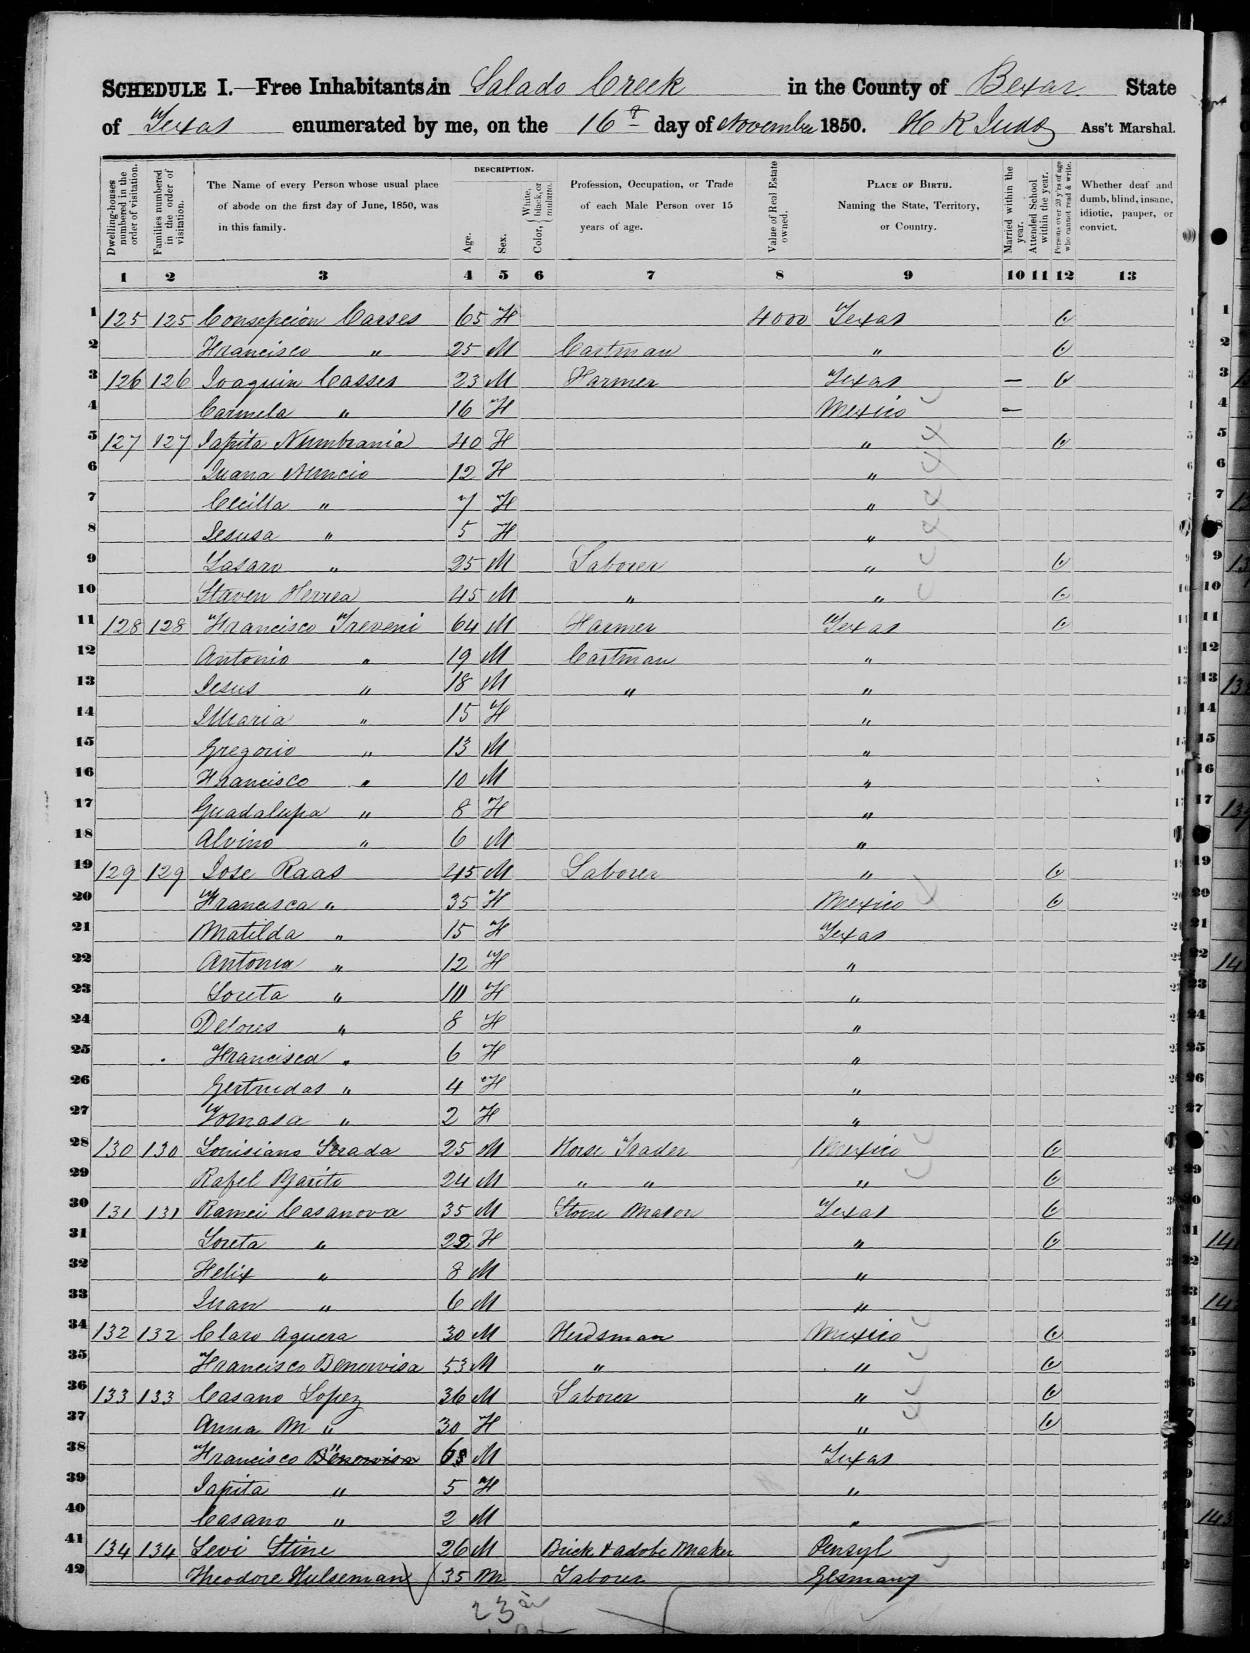 SCHEDULE I.—Free Inhabitants in Salado Creek in the County of Bexar State
of Texas enumerated by me, on the 16th day of November 1850. H K Judd Ass't Marshal.
Dwelling-houses numbered in the order of visitation.
Families numbered in the order of visitation.
The Name of every Person whose usual place of abode on the first day of June, 1850, was in this family.
DESCRIPTION.
Age.
Sex.
Color, White, black, or mulatto.
Profession, Occupation, or Trade of each Male Person over 15 years of age.
Value of Real Estate owned.
PLACE OF BIRTH. Naming the State, Territory, or Country.
Married within the year.
Attended School within the year.
Persons over 20 y'rs of age who cannot read & write.
Whether deaf and dumb, blind, insane, idiotic, pauper, or convict.
1 2 3 4 5 6 7 8 9 10 11 12 13
1 125 125 Consepcion Casses 65 F 4000 Texas
2 Francisco " 25 M Cartman "
3 126 126 Joaquin Casses 23 M Farmer Texas —
4 Carmela " 16 F Mexico —
5 127 127 Japita Numbrania 40 F "
6 Juana Nuncio 12 F "
7 Cecilla " 7 F "
8 Jesusa " 5 F "
9 Lasaro " 25 M Laborer "
10 Staven Herrea 45 M " "
11 128 128 Francisco Treveni 64 M Farmer Texas
12 Antonio " 19 M Cartman "
13 Jesus " 18 M " "
14 Maria " 15 F "
15 Gregorio " 13 M "
16 Francisco " 10 M "
17 Guadalupa " 8 F "
18 Alvino " 6 M "
19 129 129 Jose Raas 45 M Laborer "
20 Francisca " 35 F Mexico
21 Matilda " 15 F Texas
22 Antonia " 12 F "
23 Loreta " 10 F "
24 Delores " 8 F "
25 Francisca " 6 F "
26 Gertrudas " 4 F "
27 Tomasa " 2 F "
28 130 130 Louisiano Serada 25 M Horse Trader Mexico
29 Rafel Garito 24 M " " "
30 131 131 Ramei Casanova 35 M Stone Mason Texas
31 Loreta " 22 F "
32 Felix " 8 M "
33 Juan " 6 M "
34 132 132 Claro Aguera 30 M Herdsman Mexico
35 Francisco Benowisa 53 M " "
36 133 133 Casano Lopez 36 M Laborer "
37 Anna M " 30 F "
38 Francisco " 8 M Texas
39 Japita " 5 F "
40 Casano " 2 M "
41 134 134 Levi Stine 26 M Brick & adobe Maker Pensyl
42 Theodore Hulseman 35 M Laborer Germany
23